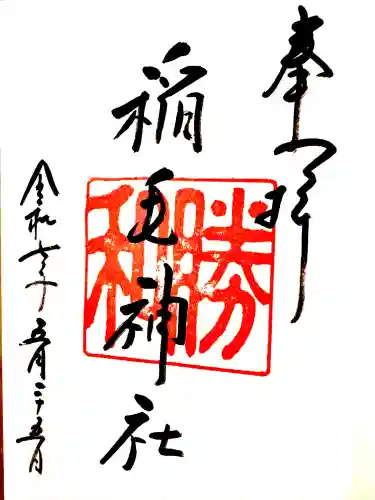 奉拝
稲毛神社
勝和
令和六年五月二十五日